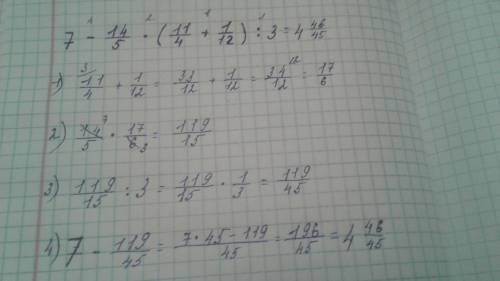 1 2 1 1
7 - 14/5 · (11/4 + 1/12) : 3 = 4 46/45
1) 3 11/4 + 1/12 = 33/12 + 1/12 = 34/12 = 17/6
2) 14 7/5 · 17/6 3 = 119/15
3) 119/15 : 3 = 119/15 · 1/3 = 119/45
4) 7 - 119/45 = 7·45-119/45 = 196/45 = 4 46/45